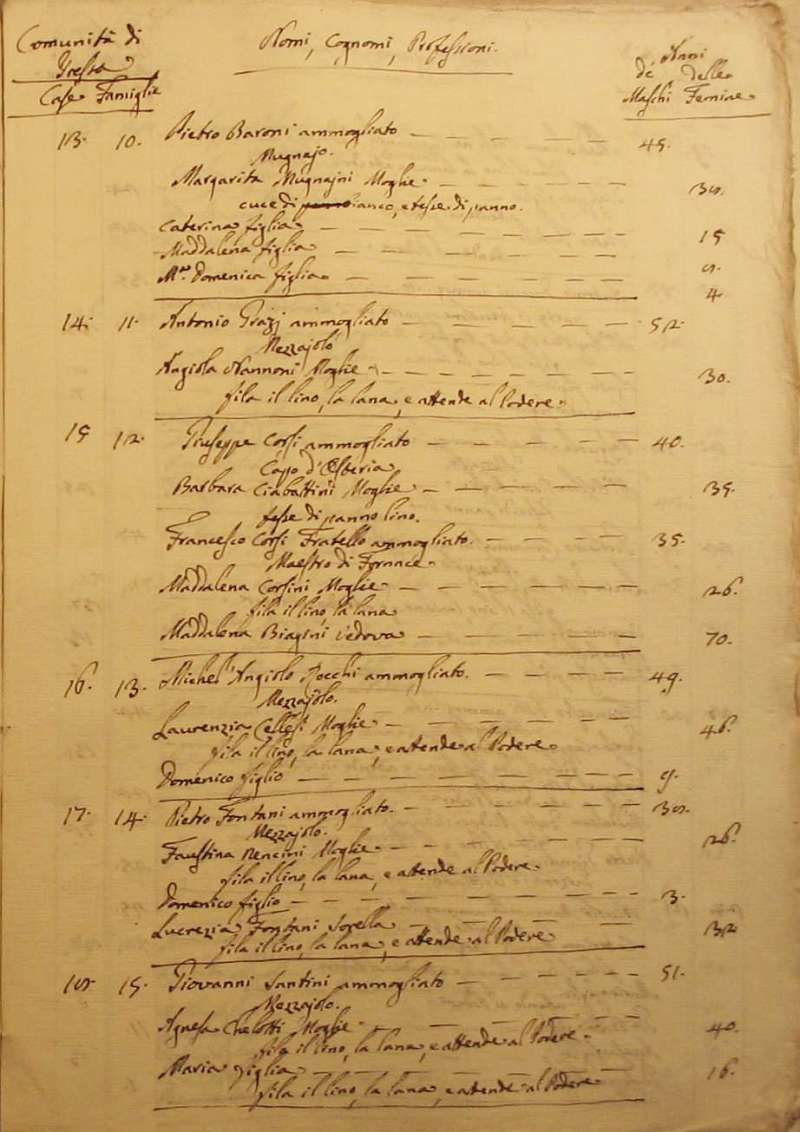 Comunità di
Nomi, Cognomi, Professioni.
Anni
de' delle
Case Famiglie
Maschi Femine
13. 10. Pietro Baroni ammogliato 45.
Mugnajo.
Margarita Mugnajni Moglie 38.
cuce di bianco, e tesse di panno.
Caterina figlia 15
Maddalena figlia 8.
M.a Domenica figlia 4.
14. 11. Antonio Grazj ammogliato 52.
Mezzajolo
Angiola Nannoni Moglie 30.
fila il lino, la lana, e attende al Podere.
15 12. Giuseppe Corsi ammogliato 40.
Capo d'
Barbara Ciabattini Moglie 35.
tesse di panno lino.
Francesco Corsi Fratello ammogliato. 35.
Maestro di Fornace.
Maddalena Corsini Moglie 26.
fila il lino, la lana
Maddalena Biagini Vedova 70.
16. 13. Michel'Angiolo Rocchi ammogliato. 49.
Mezzajolo.
Laurenzia Cellesi Moglie 46.
fila il lino, la lana, e attende al Podere
Domenico figlio 9.
17. 14. Pietro Fontani ammogliato. 38.
Mezzajolo.
Faustina Rencini Moglie 26.
fila il lino, la lana, e attende al Podere.
Domenico figlio 3.
Lucrezia Fontani Sorella 32.
fila il lino, la lana, e attende al Podere
18. 15. Giovanni Santini ammogliato 51.
Mezzajolo.
Agnesa Chelotti Moglie 40.
fila il lino, la lana, e attende al Podere.
Maria figlia 16.
fila il lino, la lana, e attende al Podere